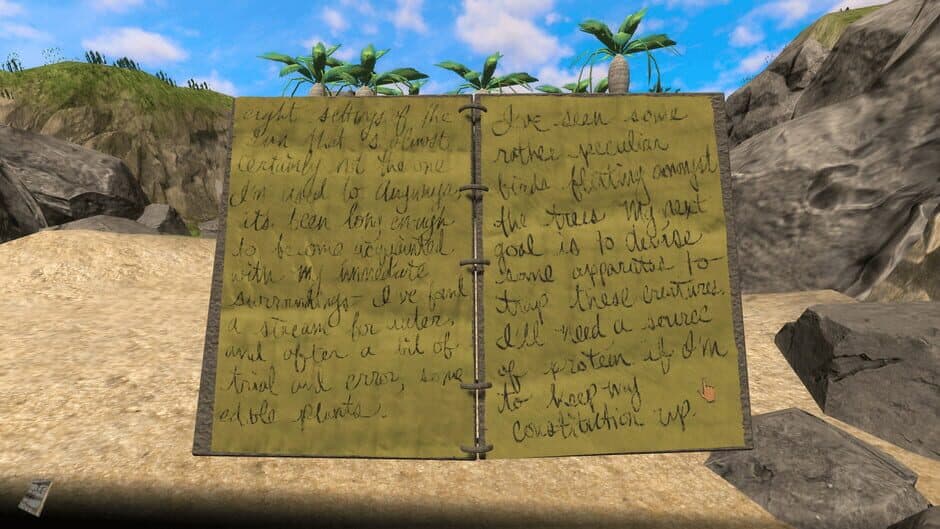 eight settings of the
sun that is almost
certainly not the one
I'm used to. Anyways,
it's been long enough
to become acquainted
with my immediate
surroundings - I've found
a stream for water,
and after a bit of
trial and error, some
edible plants.
I've seen some
rather peculiar
birds flitting amongst
the trees. My next
goal is to devise
some apparatus to
trap these creatures.
I'll need a source
of protein if I'm
to keep my
constitution up.